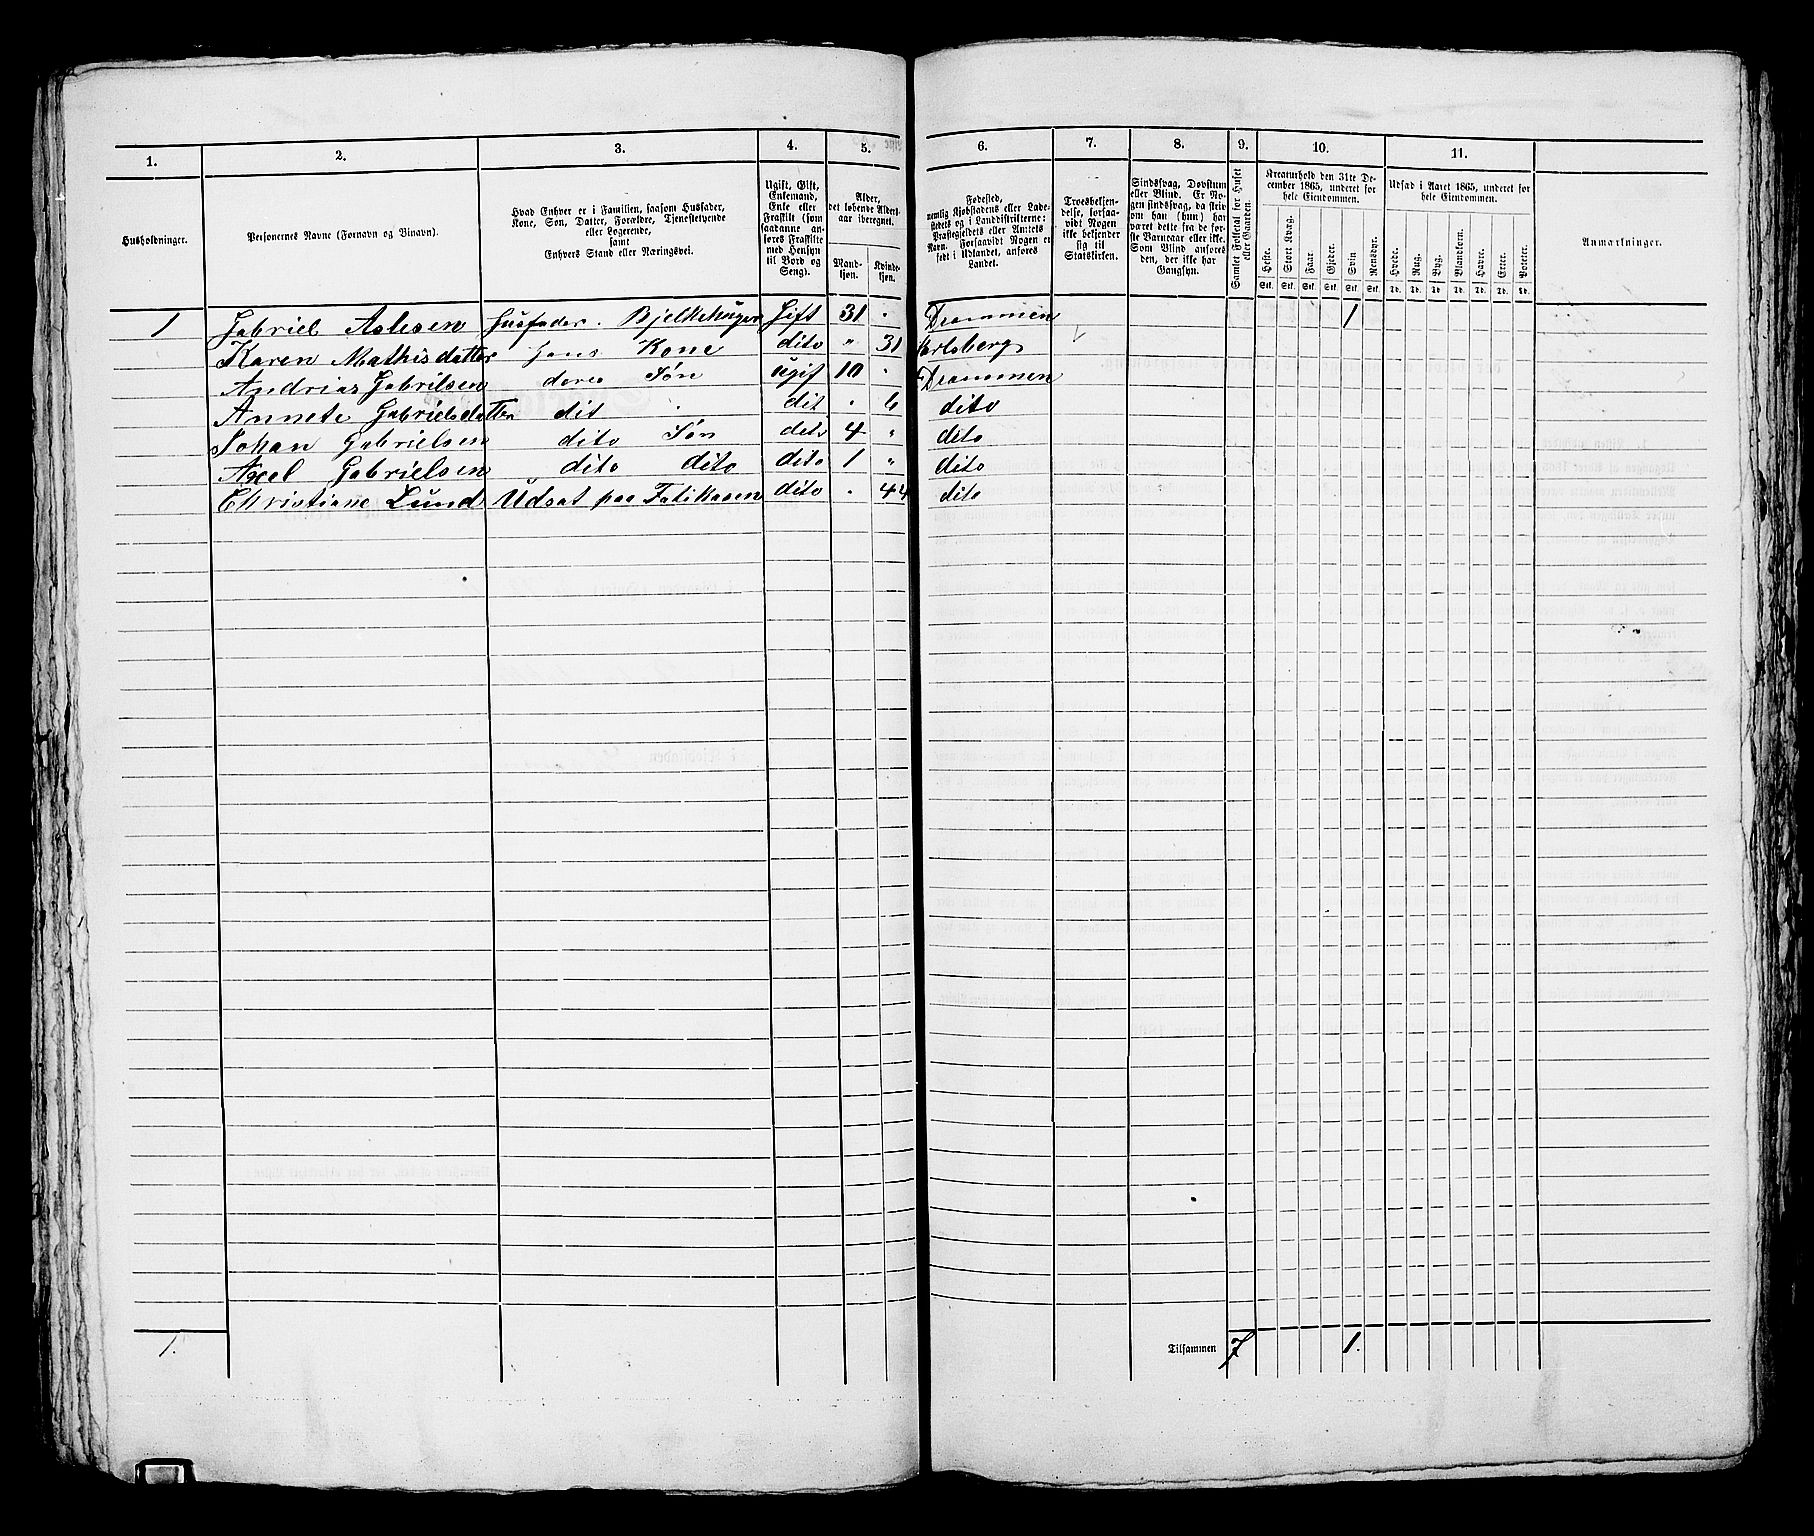 1. 2. 3. 4. 5. 6. 7. 8. 9. 10. 11.
Husholdninger.
Personernes Navne (Fornavn og Binavn).
Hvad Enhver er i Familien, saasom Husfader,
Kone, Søn, Datter, Forældre, Tjenestetyende
eller Logerende,
samt
Enhvers Stand eller Næringsvei.
Ugift, Gift,
Enkemand,
Enke eller
Fraskilt (som
saadanne an-
føres Fraskilte
med Hensyn
til Bord og
Seng).
Alder,
det løbende Alders-
aar iberegnet.
Mand-
kjøn.
Kvinde-
kjøn.
Fødested,
nemlig Kjøbstadens eller Lade-
stedets og i Landdistrikterne:
Præstegjeldets eller Amtets
Navn. Forsaavidt Nogen er
født i Udlandet, anføres
Landet.
Troesbekjen-
delse, forsaa-
vidt Nogen
ikke bekjender
sig til
Statskirken.
Sindssvag, Døvstum
eller Blind. Er No-
gen sindssvag, da skriv
om han (hun) har
været dette fra de før-
ste Barneaar eller ikke.
Som Blind anføres
den, der ikke har
Gangsyn.
Samlet Folketal for Huset
eller Gaarden.
Kreaturhold den 31te De-
cember 1865, underet for
hele Eiendommen.
Heste. Stort Kvæg. Faar. Gjeder. Svin Rensdyr.
Stk. Stk. Stk. Stk. Stk. Stk.
Udsæd i Aaret 1865, underet for
hele Eiendommen.
Hvede. Rug. Byg. Blandkorn. Havre. Erter. Poteter.
Td. Td. Td. Td. Td. Td. Td.
Anmærkninger.
1 Gabriel Aslesen Husfader. Bjelkehugger Gift 31 " Drammen 1
Karen Mathisdatter hans Kone dito " 31 Jarlsberg
Andrias Gabrilsen deres Søn ugif 10 " Drammen
Annete Gabrielsdatter dit . dit . 6 dito
Johan Gabrielsen dito Søn dito 4 " dito
Axel Gabrielsen dito dito dito 1 " dito
Christiane Lund Udsat paa Fatikasen dito . 44 dito
1. Tilsammen 7 1.